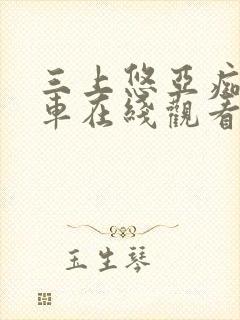 三上悠亞痴
車在綫觀看
玉生琴